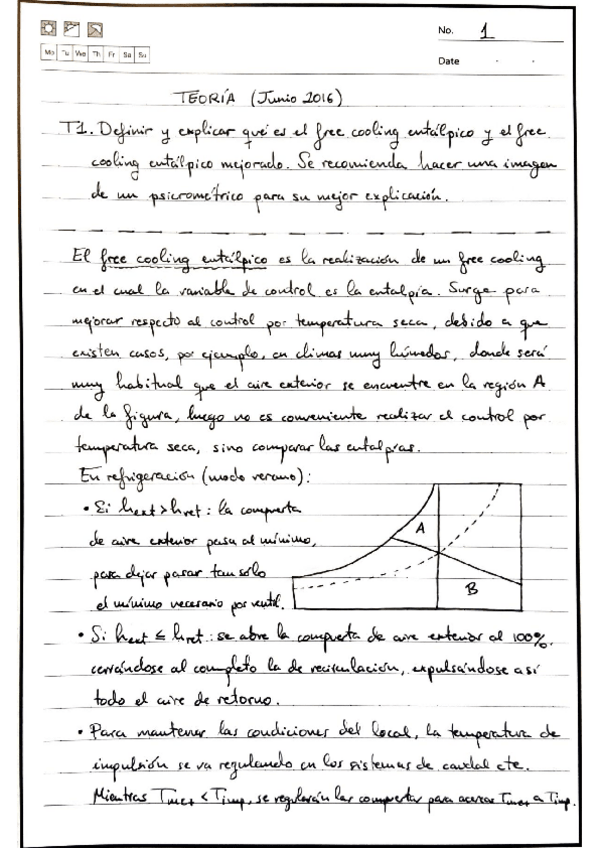 No. 1
Mo Tu We Th Fr Sa Su
Date
TEORÍA (Junio 2016)
T1. Definir y explicar qué es el free cooling entálpico y el free
cooling entálpico mejorado. Se recomienda hacer una imagen
de un psicrométrico para su mejor explicación.
El free cooling entálpico es la realización de un free cooling
en el cual la variable de control es la entalpía. Surge para
mejorar respecto al control por temperatura seca, debido a que
existen casos, por ejemplo, en climas muy húmedos, donde será
muy habitual que el aire exterior se encuentre en la región A
de la figura, luego no es conveniente realizar el control por
temperatura seca, sino comparar las entalpías.
En refrigeración (modo verano):
• Si hext > hret: la compuerta
de aire exterior pasa al mínimo,
para dejar pasar tan sólo
el mínimo necesario por ventil.
A
B
• Si hext ≤ hret: se abre la compuerta de aire exterior al 100%,
cerrándose al completo la de recirculación, expulsándose así
todo el aire de retorno.
• Para mantener las condiciones del local, la temperatura de
impulsión se va regulando en los sistemas de caudal cte.
Mientras Tmez < Timp, se regularán las compuertas para acercar Tmez a Timp.